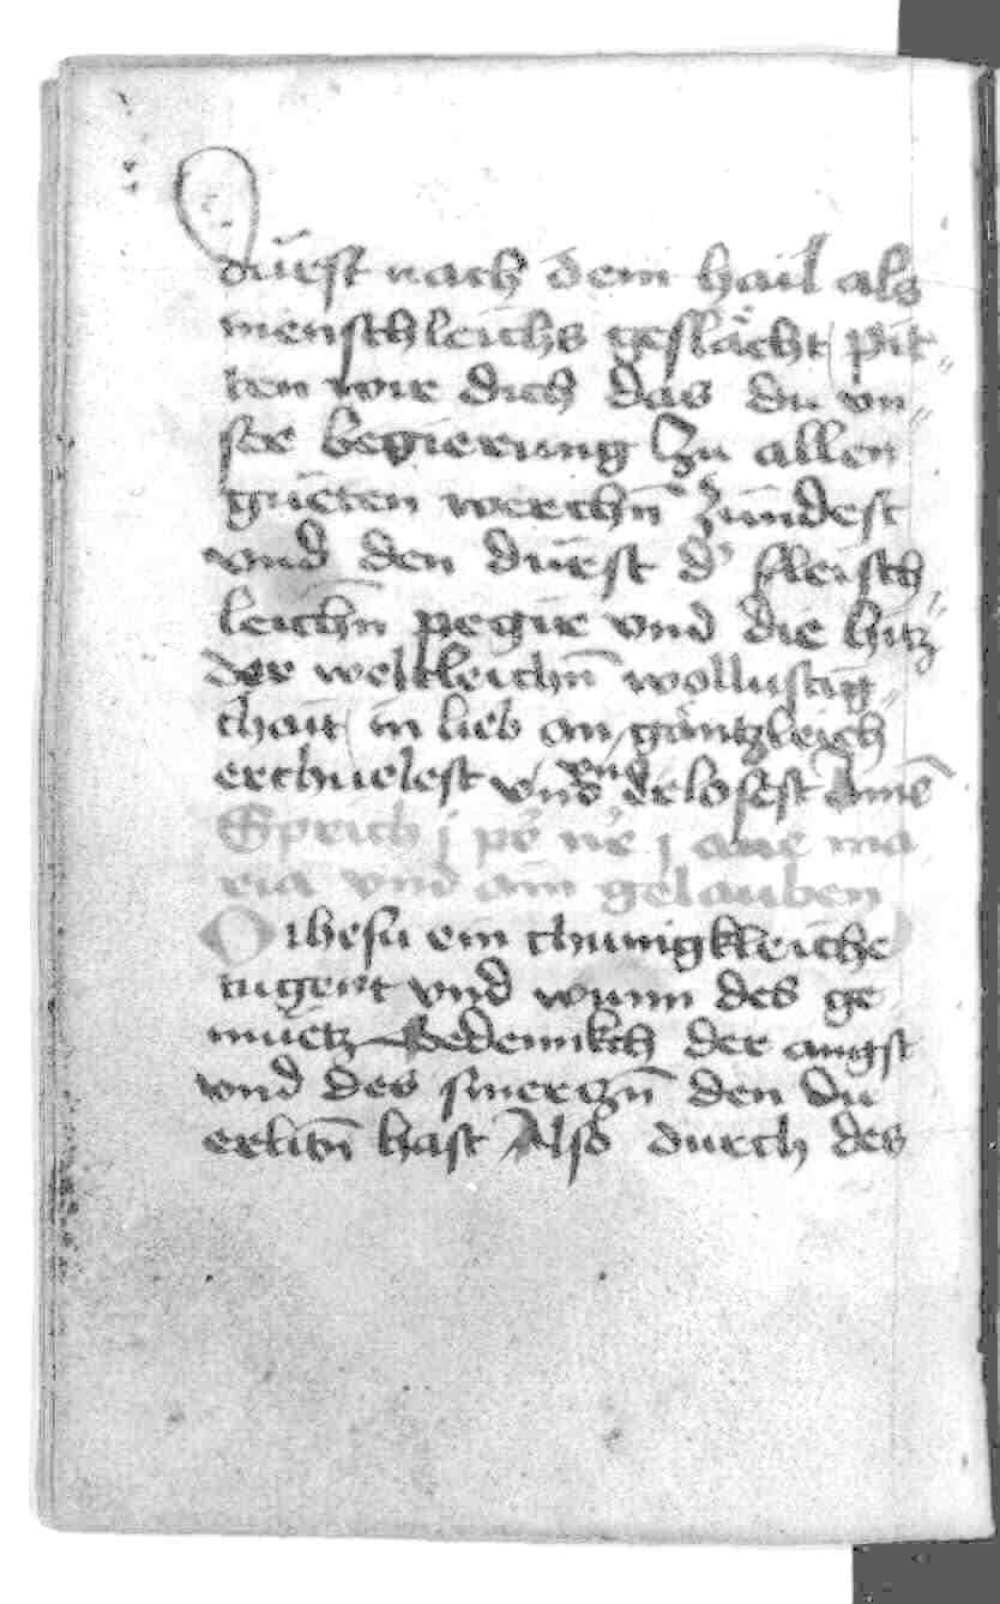 dürst nach dem hail als
menschleichs geslächt pit„
ten wir dich das du vn„
ser begierung zu allen
gueten werchn̄ zündest
vnd den dürst d' fleisch„
leichn̄ pegir vnd die hitz
der weltleichn̄ wollustig„
chait in lieb an gäntzleich
erchuelest vnd erlosest Amē
Sprich j pr̄ nr̄ j aue ma
ria vnd ain gelauben
O ihesu ein chunigkleiche
tugent vnd wunn des ge
muetz Gedennkch der angst
vnd des smerczn̄ den du
erlitn̄ hast Also durch des